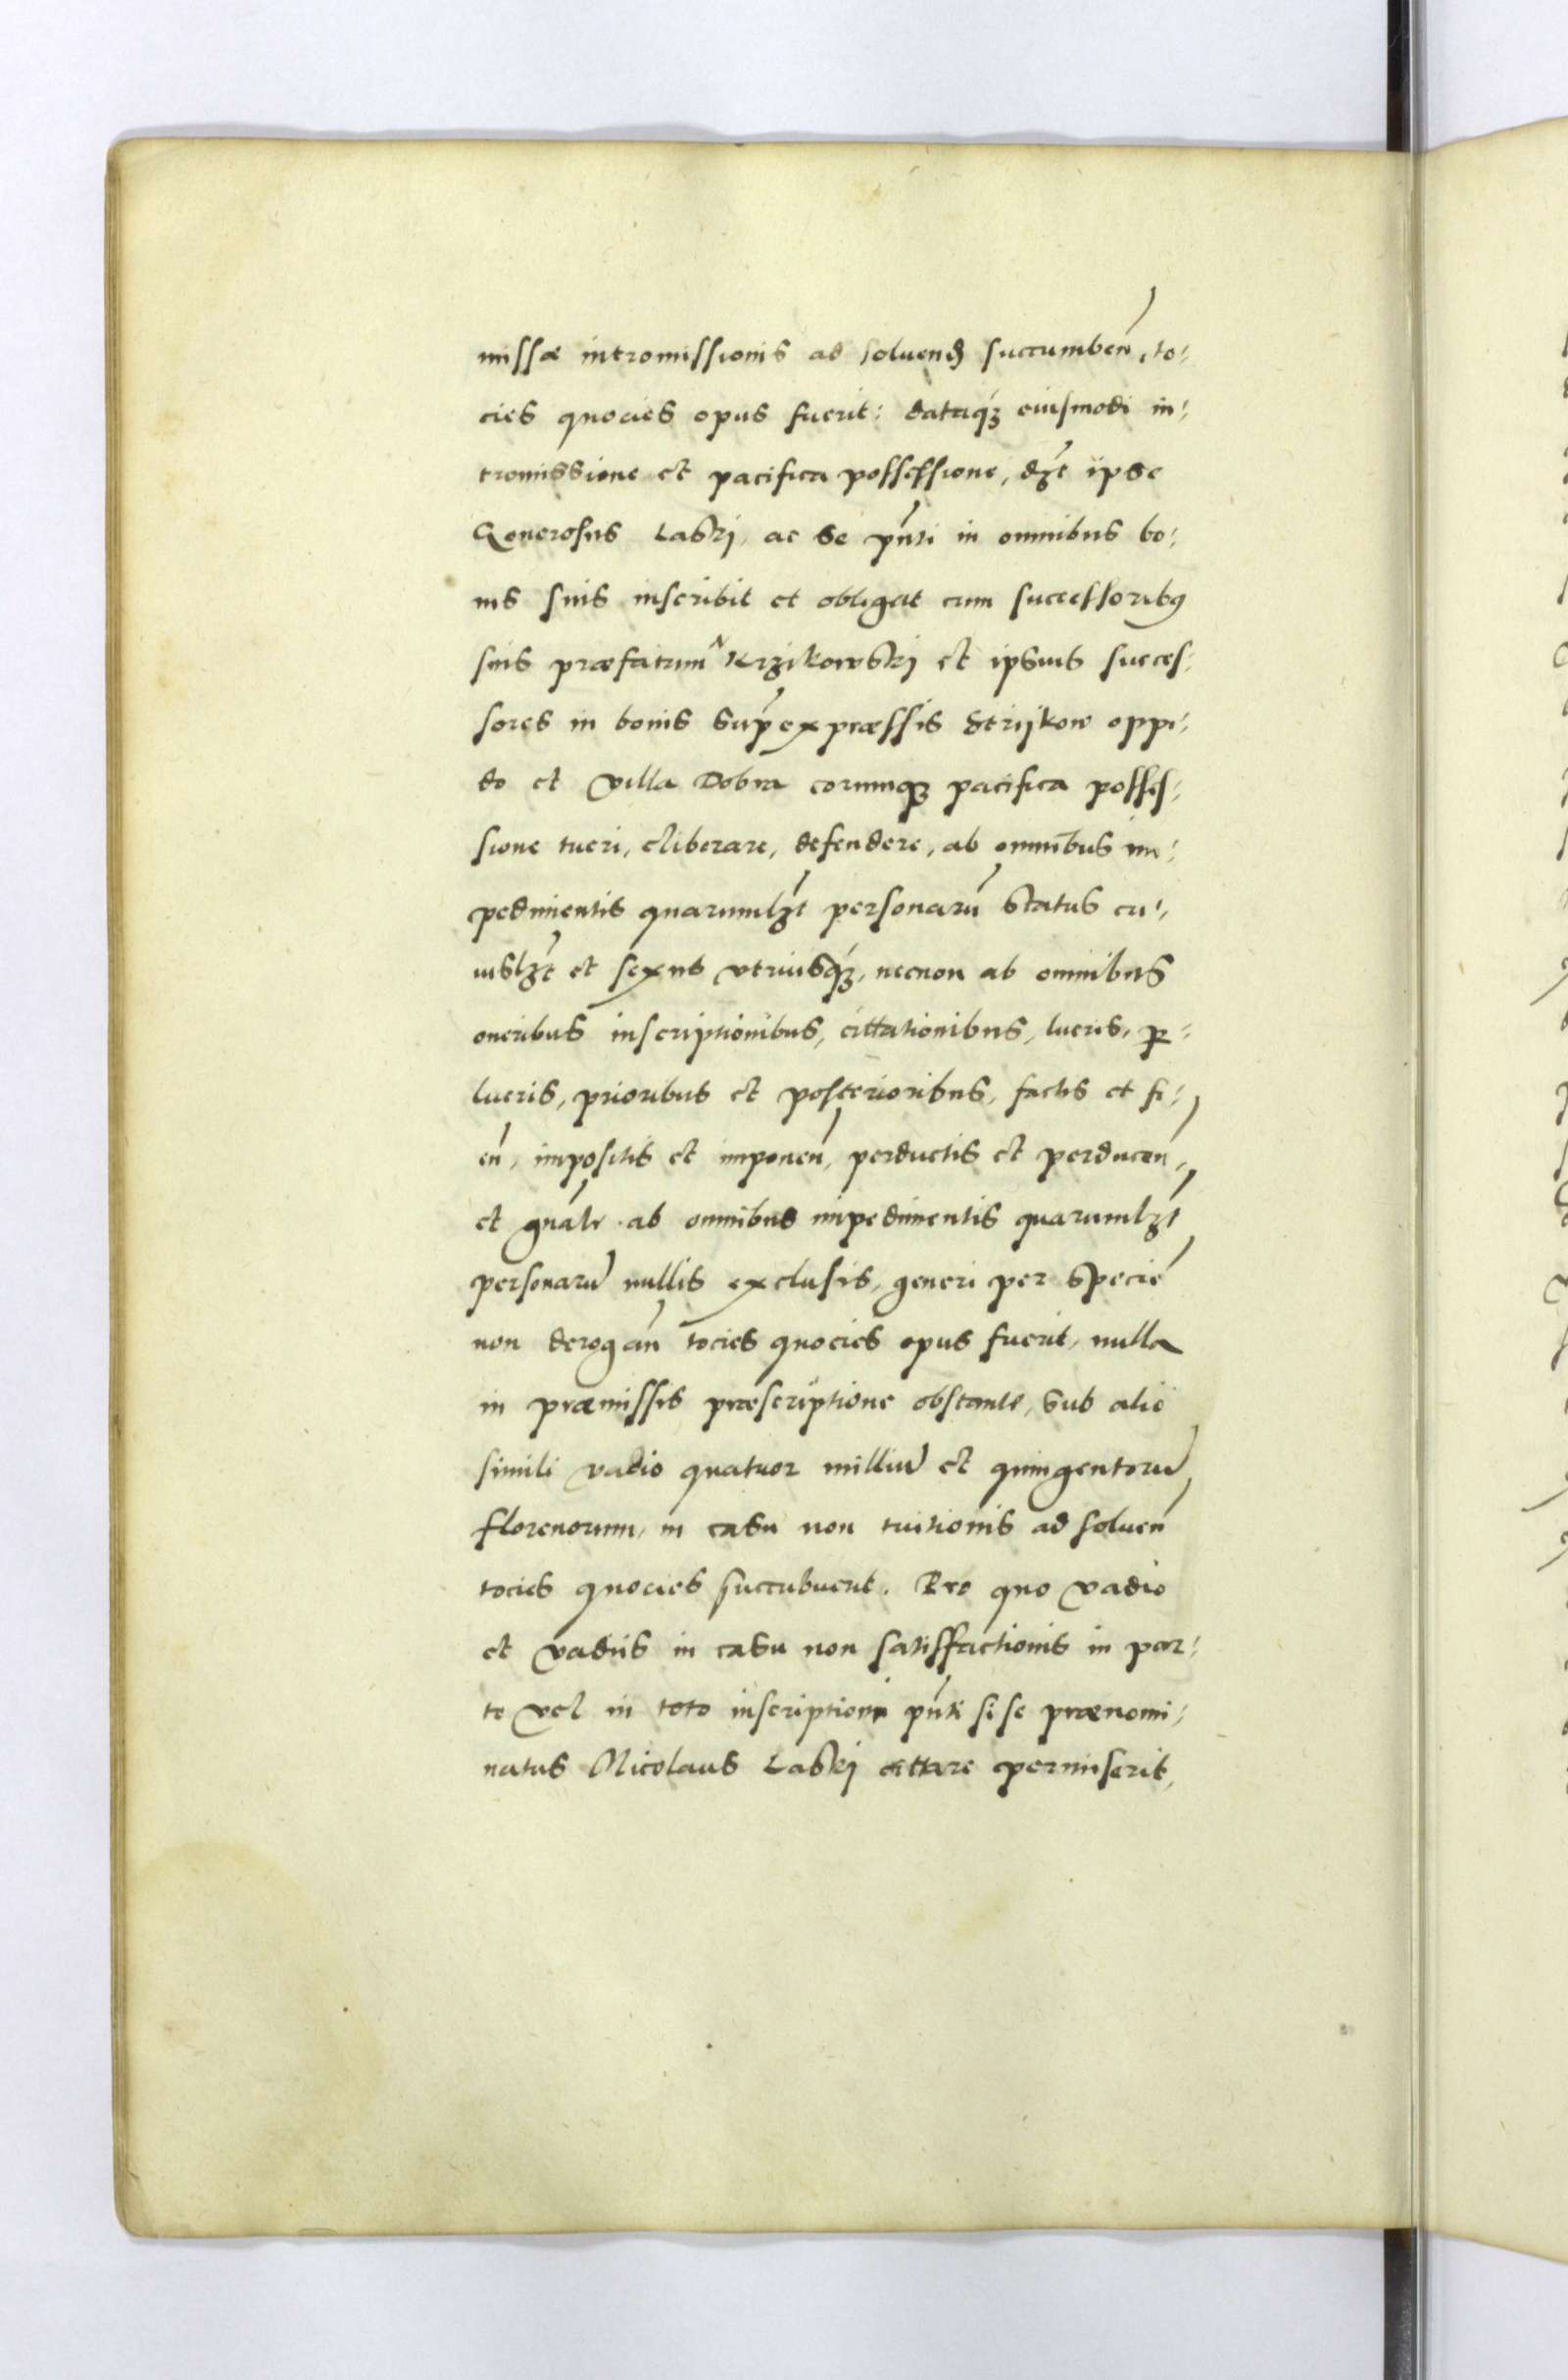 missæ intromissionis ad soluend succumben̄, to:
cies quocies opus fuerit: dataq́ꝫ eiusmodi in:
tromissione et pacifica possessione, dꝫt ipse
Generosus Laskj, ac se pn̄ti in omnibus bo:
nis suis inscribit et obligat cum successoribꝰ
suis præfatum Krzikowskj et ipsius succes:
sores in bonis sup̄expræssis Strijkow oppi:
do et villa Dobra eorumqꝫ pacifica posses:
sione tueri, eliberare, defendere, ab omnibus im:
pedimentis quarumlꝫt personarū status cu:
iuslꝫt et sexus vtriusq́ꝫ, necnon ab omnibus
oneribus inscriptionibus, cittationibus, lucris, ꝑ:
lucris, prioribus et posterioribus, factis et fi:
en̄, impositis et imponen̄, perductis et perducen̄,
et gn̄alr ab omnibus impedimentis quarumlꝫt
personarū nullis exclusis, generi per speciē
non derogan̄ tocies quocies opus fuerit, nulla
in præmissis præscriptione obstante, sub alio
simili vadio quatuor milliū et quingentorū
florenorum, in casu non tuitionis ad soluen̄
tocies quocies succubuerit. Pro quo vadio
et vadiis in casu non satisffactionis in par:
te vel in toto inscriptioni pn̄ti si se prænomi:
natus Nicolaus Laskj cittare permiserit,